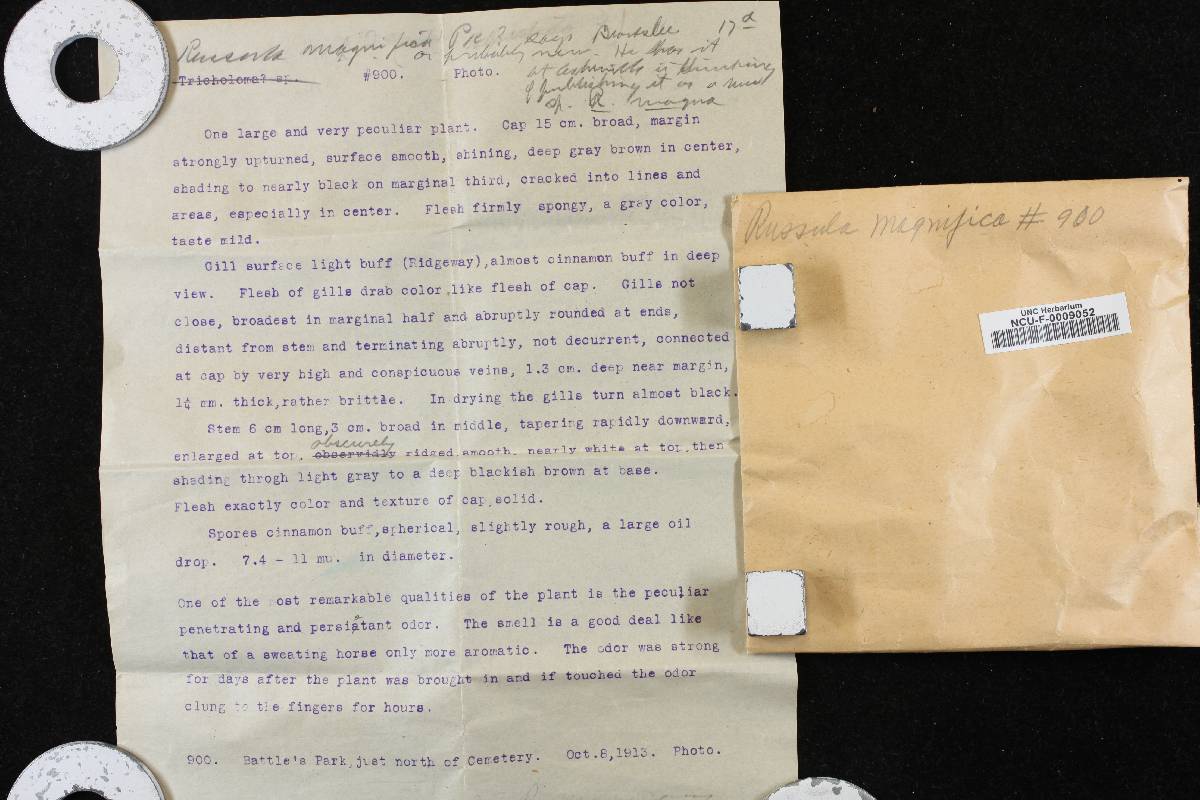 Russula magnifica Pk? says Beardslee 17d
or probably new. He has it
Tricholoma? sp. #900. Photo.
at Asheville is thinking
of publishing it as a new
sp. R. magna
One large and very peculiar plant. Cap 15 cm. broad, margin
strongly upturned, surface smooth, shining, deep gray brown in center,
shading to nearly black on marginal third, cracked into lines and
areas, especially in center. Flesh firmly spongy, a gray color,
taste mild.
Gill surface light buff (Ridgeway),almost cinnamon buff in deep
view. Flesh of gills drab color,like flesh of cap. Gills not
close, broadest in marginal half and abruptly rounded at ends,
distant from stem and terminating abruptly, not decurrent, connected
at cap by very high and conspicuous veins, 1.3 cm. deep near margin,
1¼ mm. thick,rather brittle. In drying the gills turn almost black.
Stem 6 cm long,3 cm. broad in middle, tapering rapidly downward,
obscurely
enlarged at top, observidly ridged,smooth, nearly white at top,then
shading throgh light gray to a deep blackish brown at base.
Flesh exactly color and texture of cap,solid.
Spores cinnamon buff,spherical, slightly rough, a large oil
drop. 7.4 - 11 mu. in diameter.
One of the most remarkable qualities of the plant is the peculiar
penetrating and persistant odor. The smell is a good deal like
that of a sweating horse only more aromatic. The odor was strong
for days after the plant was brought in and if touched the odor
clung to the fingers for hours.
900. Battle's Park,just north of Cemetery. Oct.8,1913. Photo.
Russula magnifica # 900
UNC Herbarium
NCU-F-0009052